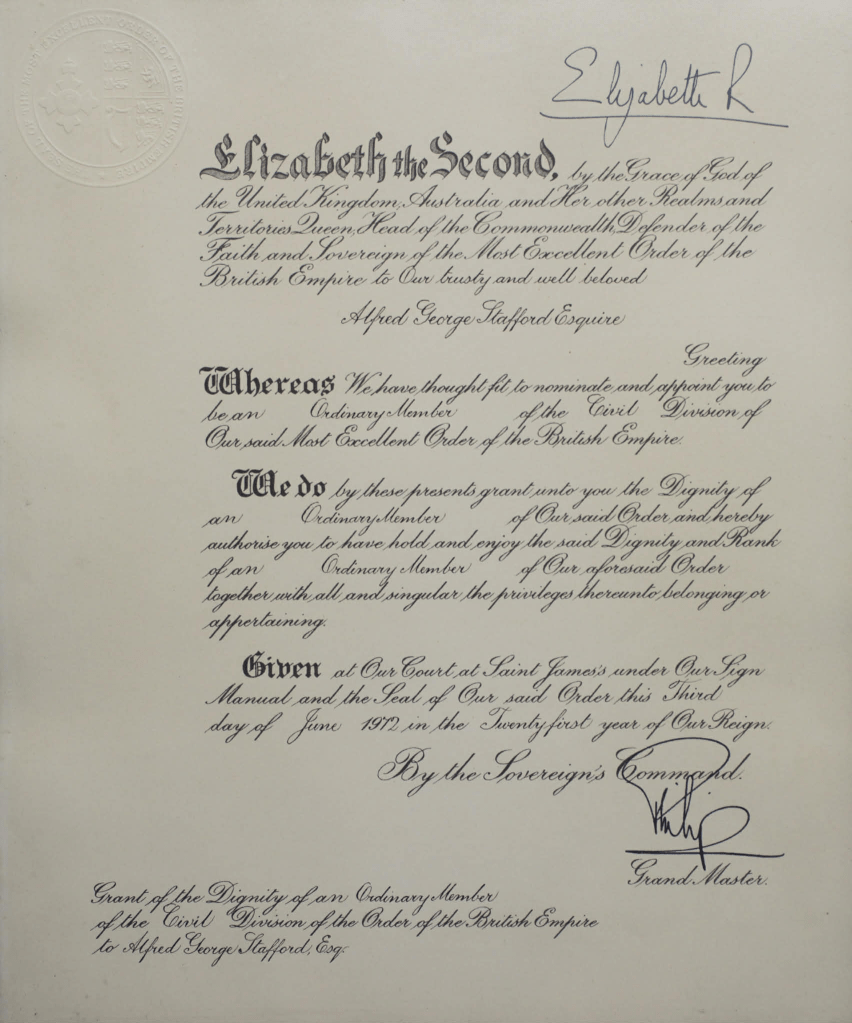 Elizabeth R
Elizabeth the Second, by the Grace of God of
the United Kingdom, Australia and Her other Realms and
Territories Queen, Head of the Commonwealth, Defender of the
Faith and Sovereign of the Most Excellent Order of the
British Empire to Our trusty and well beloved
Alfred George Stafford Esquire
Greeting
Whereas We have thought fit to nominate and appoint you to
be an Ordinary Member of the Civil Division of
Our said Most Excellent Order of the British Empire.
We do by these presents grant unto you the Dignity of
an Ordinary Member of Our said Order and hereby
authorise you to have hold and enjoy the said Dignity and Rank
of an Ordinary Member of Our aforesaid Order
together with all and singular the privileges thereunto belonging or
appertaining.
Given at Our Court at Saint James's under Our Sign
Manual and the Seal of Our said Order this Third
day of June 1972 in the Twenty first year of Our Reign.
By the Sovereign's Command.
Philip
Grand Master.
Grant of the Dignity of an Ordinary Member
of the Civil Division of the Order of the British Empire
to Alfred George Stafford, Esq.